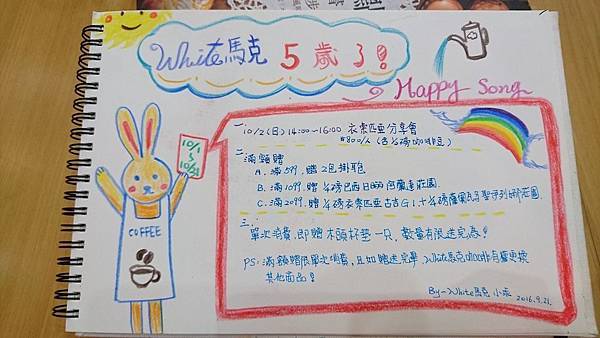 White馬克5歲了!
Happy Song
10/1
10/31
COFFEE
一、10/2(日) 14:00~16:00 衣索匹亞分享會
$800/人 (含½磅咖啡豆)
二、滿額贈
A. 滿599. 贈 2包掛耳包
B. 滿1099. 贈 ½磅巴西日曬 莊園
C. 滿2099. 贈 ½磅衣索匹亞古吉G1+½磅薩爾瓦多聖伊列娜莊園
三、
單次消費,即贈 木頭杯墊一只,數量有限送完為止!
PS: 滿額贈限單次消費,且如贈送完畢,White馬克咖啡有權更換
其他商品!
By~White馬克 小乖
2016.9.21.